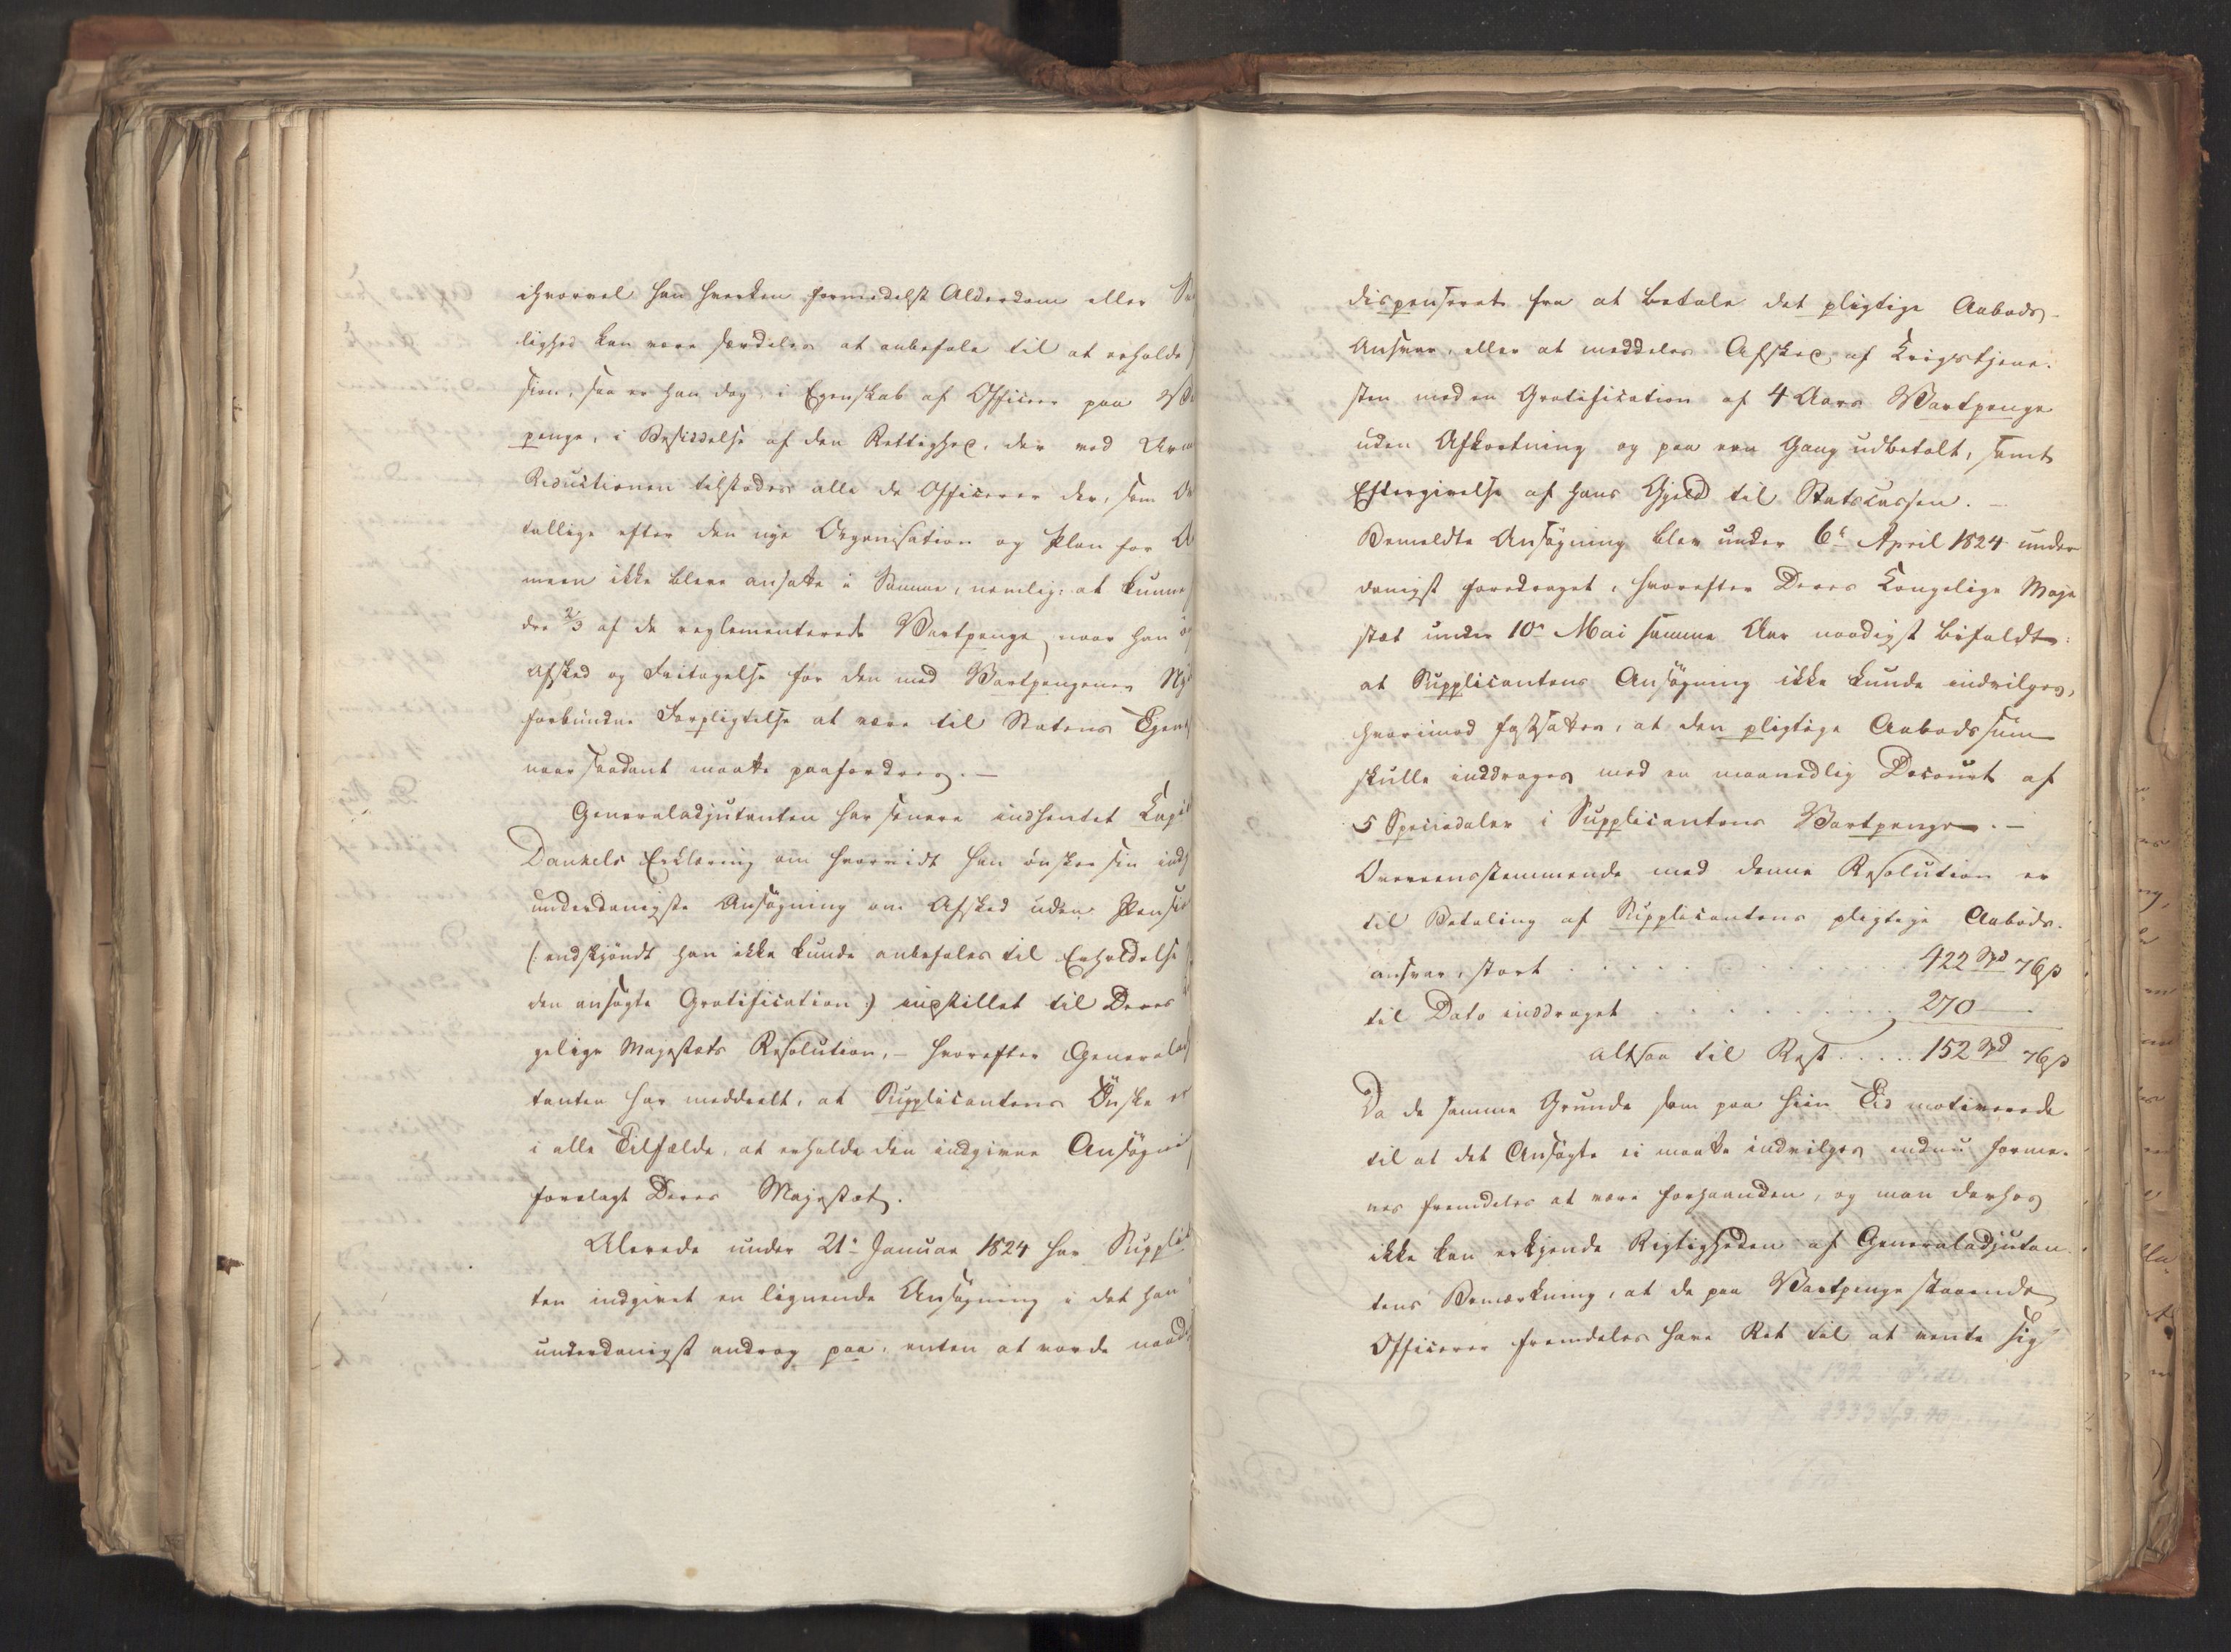 ihvorvel han hverken formedelst Alderdom eller
lighed kan være særdeles at anbefale til at erholde
sion, saa er han dog, i Egenskab af Officeer paa
penge, i Besiddelse af den Rettighed, der ved
Reductionen tilstodes alle de Officerer der, som
tallige efter den nye Organisation og Plan for
meen ikke bleve ansatte i Samme, nemlig: at kunne
dre 2/3 af de reglementerede Vartpenge naar han
Afsked og Fritagelse for den med Vartpengenes
forbundne Forpligtelse at være til Statens
naar saadant maatte paafordres. —
Generaladjutanten har senere indhentet
Dankels Erklæring om hvorvidt han ønsker sin
underdanigste Ansøgning om Afsked uden
(: endskjøndt han ikke kunde anbefales til Erholdelse
den ansøgte Gratification :) indstillet til Deres
gelige Majestæts Resolution, – hvorefter
tanten har meddeelt, at Supplicantens Ønske er
i alle Tilfælde, at erholde den indgivne
forelagt Deres Majestæt.
Allerede under 21de Januar 1824 har
ten indgivet en lignende Ansøgning i det han
underdanigst androg paa, enten at vorde
dispenseret fra at betale det pligtige Aabods-
Ansvar, eller at meddeles Afsked af Krigstjene-
sten med en Gratification af 4 Aars Vartpenge
uden Afkortning og paa een Gang udbetalt, samt
Eftergivelse af hans Gjeld til Statscassen. —
Bemeldte Ansøgning blev under 6te April 1824 under-
danigst foredraget, hvorefter Deres Kongelige Maje
stæt under 10de Mai samme Aar naadigst bifaldt:
at Supplicantens Ansøgning ikke kunde indvilges,
hvorimod fastsattes, at den pligtige Aabodssum
skulle inddrages med en maanedlig Decourt af
5 Speciedaler i Supplicantens Vartpenge. —
Overeensstemmende med denne Resolution er
til Betaling af Supplicantens pligtige Aabods-
ansvar, stort . . . . . . . . . . 422 Spd 76 ß
til Dato inddraget . . . . . . . . . 270 —
altsaa til Rest . . . . . 152 Spd 76 ß
Da de samme Grunde som paa hiin Tid motiverede
til at det Ansøgte ei maatte indvilges endnu forme-
nes fremdeles at være forhaanden, og man derhos
ikke kan erkjende Rigtigheden af Generaladjutan-
tens Bemærkning, at de paa Vartpenge staaende
Officerer fremdeles have Ret til at vente sig